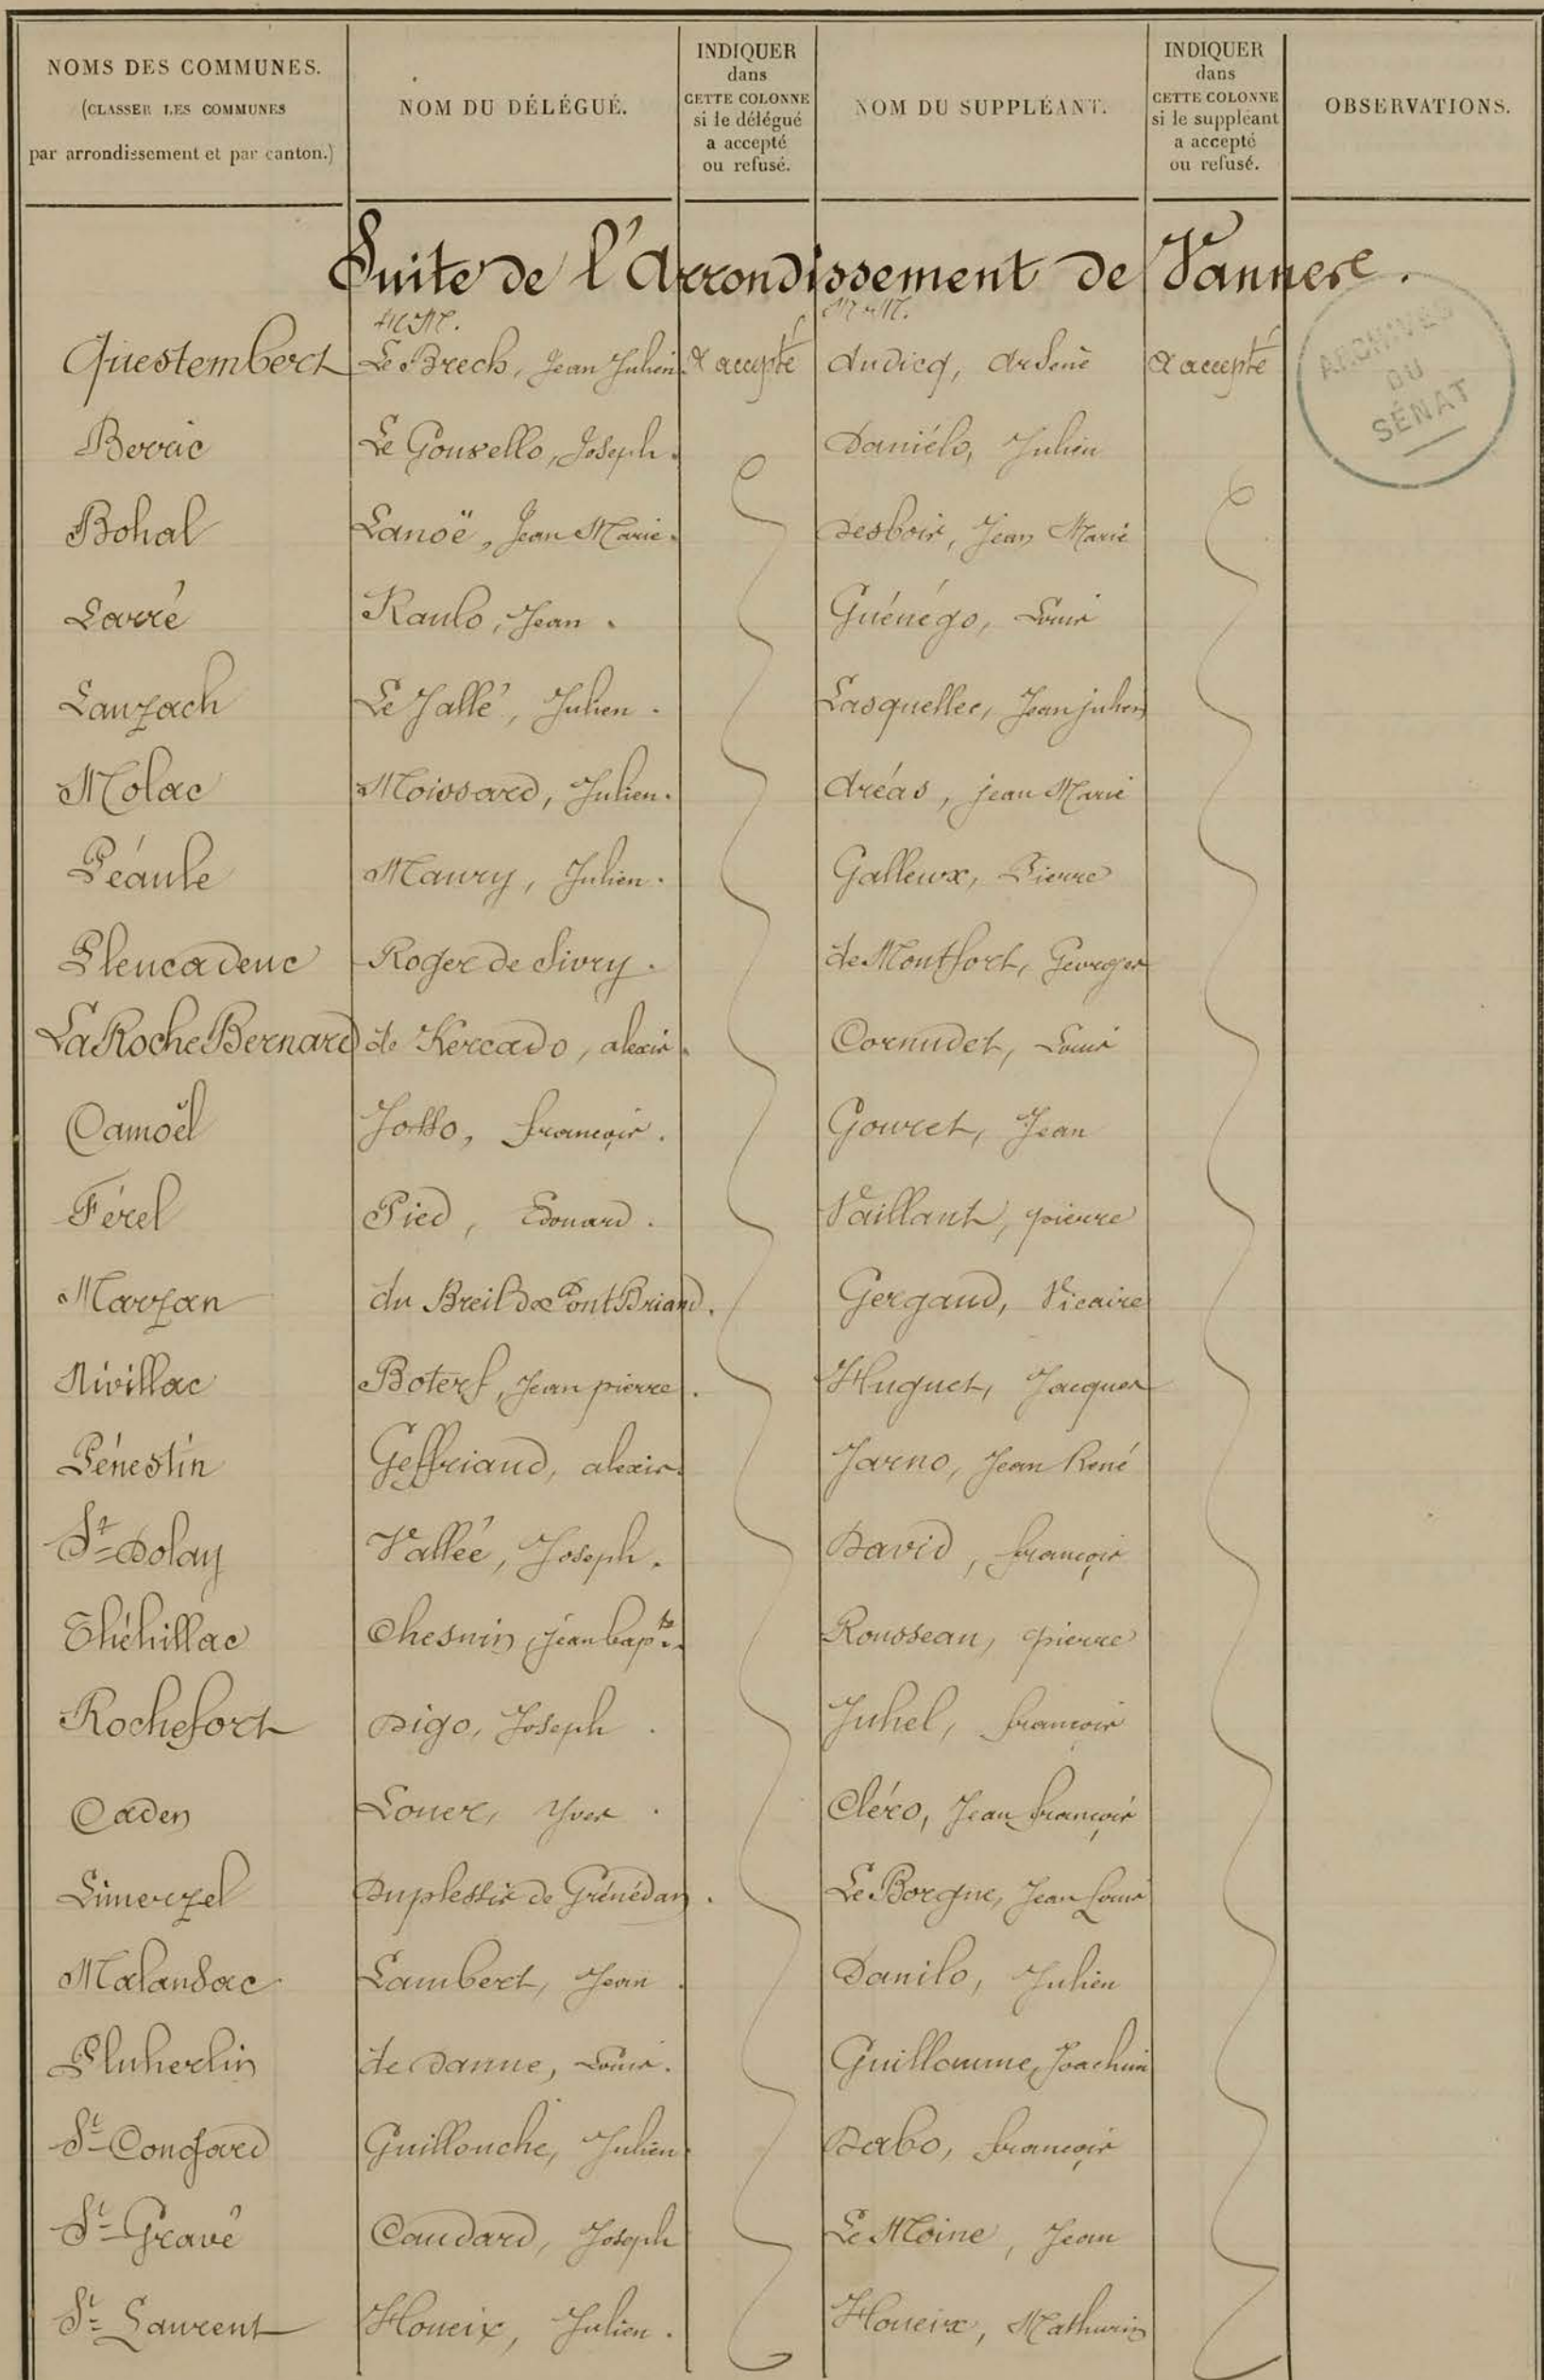 NOMS DES COMMUNES.
(CLASSER LES COMMUNES
par arrondissement et par canton.)
NOM DU DÉLÉGUÉ.
INDIQUER
dans
CETTE COLONNE
si le délégué
a accepté
ou refusé.
NOM DU SUPPLÉANT.
INDIQUER
dans
CETTE COLONNE
si le suppléant
a accepté
ou refusé.
OBSERVATIONS.
Suite de l'Arrondissement de Vannes.
MM. MM.
Questembert Le Brech, Jean Julien. a accepté Audicq, Arsène a accepté
Berric Le Gouvello, Joseph. Daniélo, Julien
Bohal Lanoë, Jean Marie. Desbois, Jean Marie
Larré Raulo, Jean. Guénégo, Louis
Lauzach Le Jallé, Julien. Lasquellec, Jean julien
Molac Moissard, Julien. Aréas, jean Marie
Péaule Maury, Julien. Galleux, Pierre
Pleucadeuc Roger de Sivry. de Montfort, Georges
La Roche Bernard de Kercado, alexis. Cornudet, Louis
Camoël Josso, françois. Gouret, Jean
Férel Pied, Edouard. Vaillant, pierre
Marzan du Breil de Pont Briand. Gergaud, Vicaire
Nivillac Boterf, Jean pierre. Huguet, Jacques
Pénestin Geffriaud, alexis. Jarno, Jean René
St Dolay Vallée, Joseph. David, françois
Théhillac Chesnin, jean bapte. Rousseau, pierre
Rochefort Digo, Joseph. Juhel, françois
Caden Louer, Yves. Cléro, Jean françois
Limerzel Duplessis de Grénédan. Le Borgne, Jean Louis
Malansac Lambert, Jean. Danilo, Julien
Pluherlin de Danne, Louis. Guillaume, Joachim
St Congard Guillouche, Julien. Dabo, françois
St Gravé Caudard, Joseph Le Moine, Jean
St Laurent Houeix, Julien. Houeix, Mathurin
ARCHIVES
DU
SÉNAT